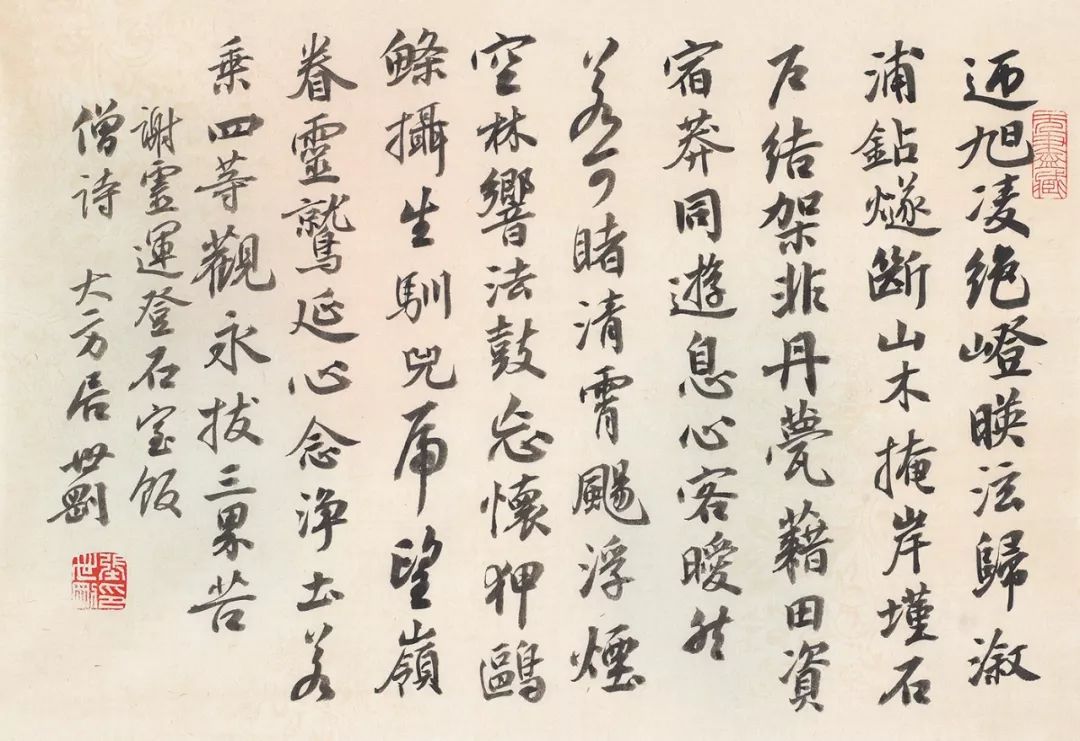 迎旭凌絕嶝暎泫歸漵
浦鉆燧斷山木掩岸墐石
戶結架非丹甍藉田資
宿莽同遊息心客曖然
若可睹清霄颺浮煙
空林響法鼓忘懷狎鷗
鰷攝生馴兕虎望嶺
眷靈鷲延心念淨土若
乘四等觀永拔三界苦
謝靈運登石室飯
僧詩 大方居世剛
張世剛印